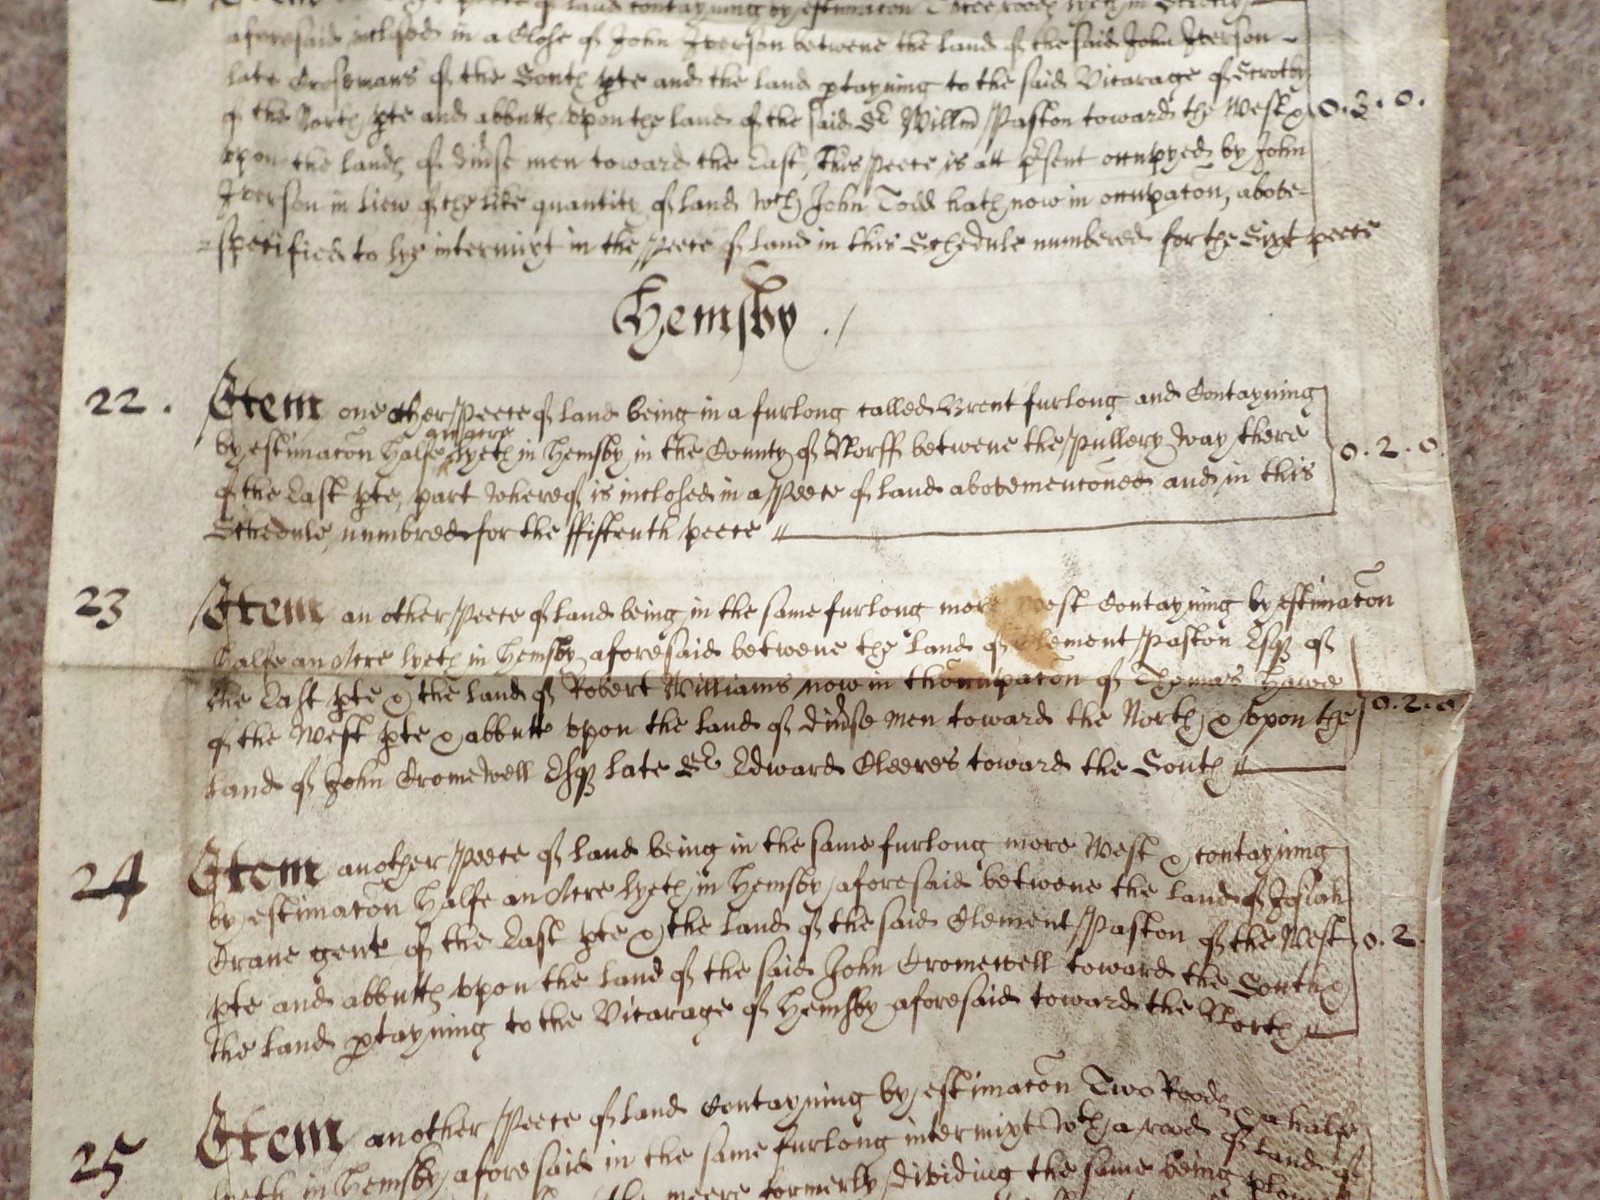 Item peece of land contayning by estimacon Three roods lyeth in Scrotby
aforesaid inclosed in a Close of John Iverson betwene the land of the said John Iverson
late Crosmans of the South pte and the land ptayning to the said Vicarage of Scrotby
of the North pte and abbutt vpon the land of the said Sr Willm Paston toward the West & 0.3.0.
vpon the land of divse men toward the East, this peece is att psent occupyed by John
Iverson in liew of the like quantitie of land wch John Todd hath now in occupacon, above
specified to lye intermixt in the peece of land in this Schedule numbered for the Sixt peece
Hemsby ./
22. Item one other peece of land being in a furlong called Brent furlong and Contayning
an acre
by estimacon halfe lyeth in Hemsby in the County of Norff betwene the Pullery way there 0.2.0.
of the East pte, part whereof is inclosed in a peece of land abovemenconed and in this
Schedule numbred for the ffifteenth peece
23 Item an other peece of land being in the same furlong more West Contayning by estimacon
halfe an Acre lyeth in Hemsby aforesaid betwene the land of Clement Paston Esq of
the East pte & the land of Robert Williams now in thoccupacon of Thomas Hawe
of the West pte & abbutt vpon the land of divse men toward the North & vpon the 0.2.0
land of John Cromewell Esq late Sr Edward Cleeres toward the South
24 Item another peece of land being in the same furlong more West & contayning
by estimacon halfe an Acre lyeth in Hemsby aforesaid betwene the land of Josiah
Crane gent of the East pte & the land of the said Clement Paston of the West 0.2.
pte and abbutth vpon the land of the said John Cromewell toward the South &
the land ptayning to the Vicarage of Hemsby aforesaid toward the North
25 Item another peece of land Contayning by estimacon Two Roods & a halfe
lyeth in Hemsby aforesaid in the same furlong intermixt wth a rood of land of
the meere formerly dividing the same being